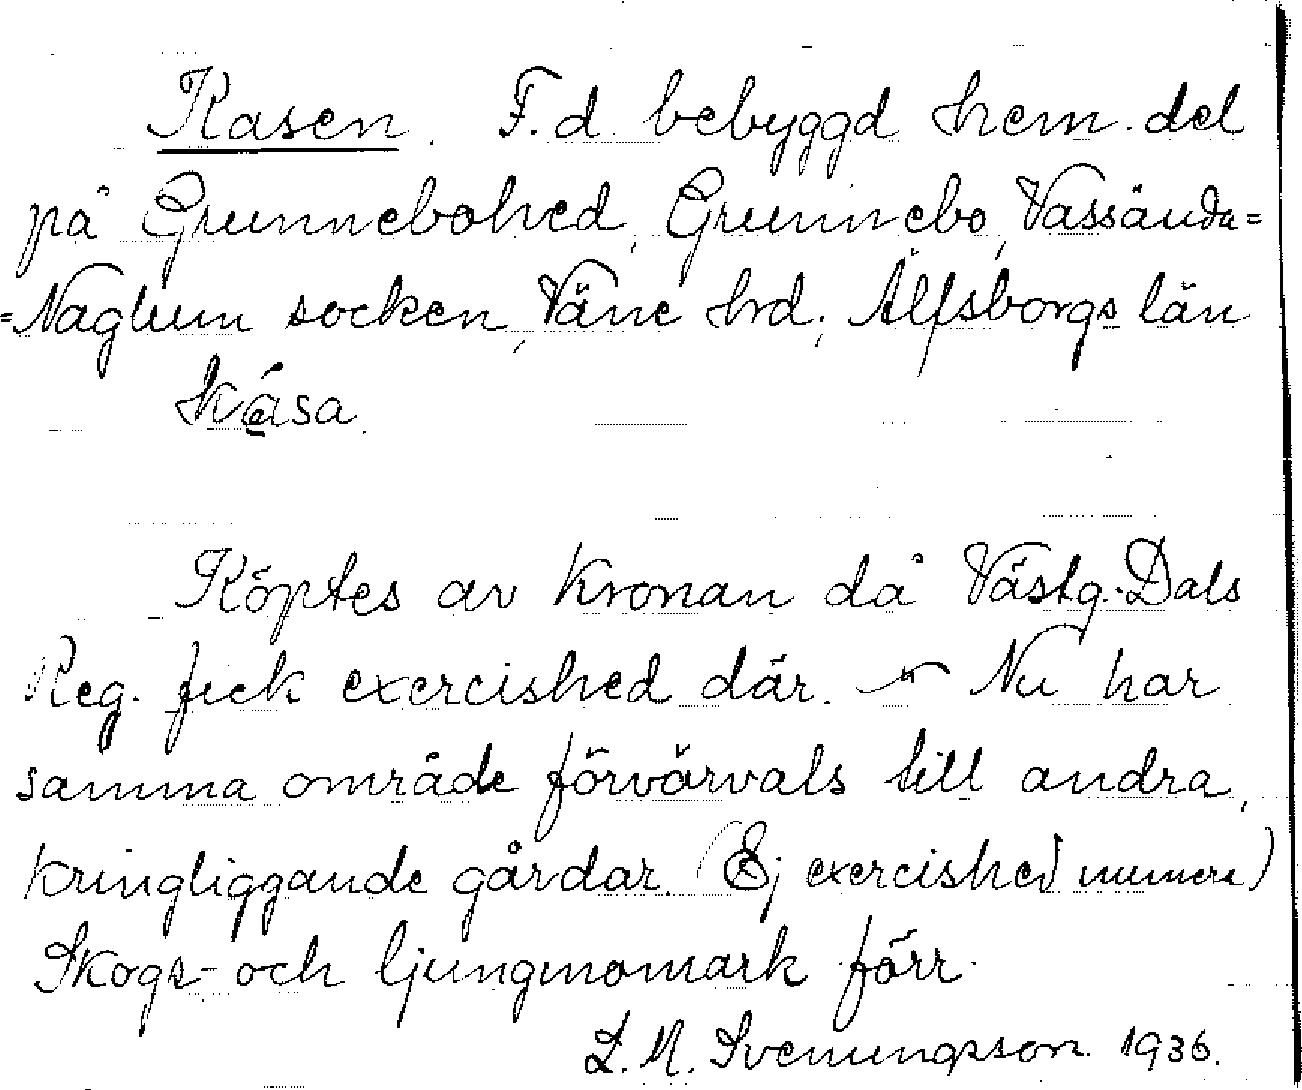 Kasen. F.d. bebyggd hem. del
på Grunnebohed, Grunnebo, Vassända=
=Naglum socken, Väne hrd, Älfsborgs län
kása.
Köptes av Kronan då Västg.-Dals
Reg. fick exercished där. — Nu har
samma område förvärvats till andra,
kringliggande gårdar. (Ej exercished numera)
Skogs- och ljungmomark förr.
L. M. Svenungsson 1936.